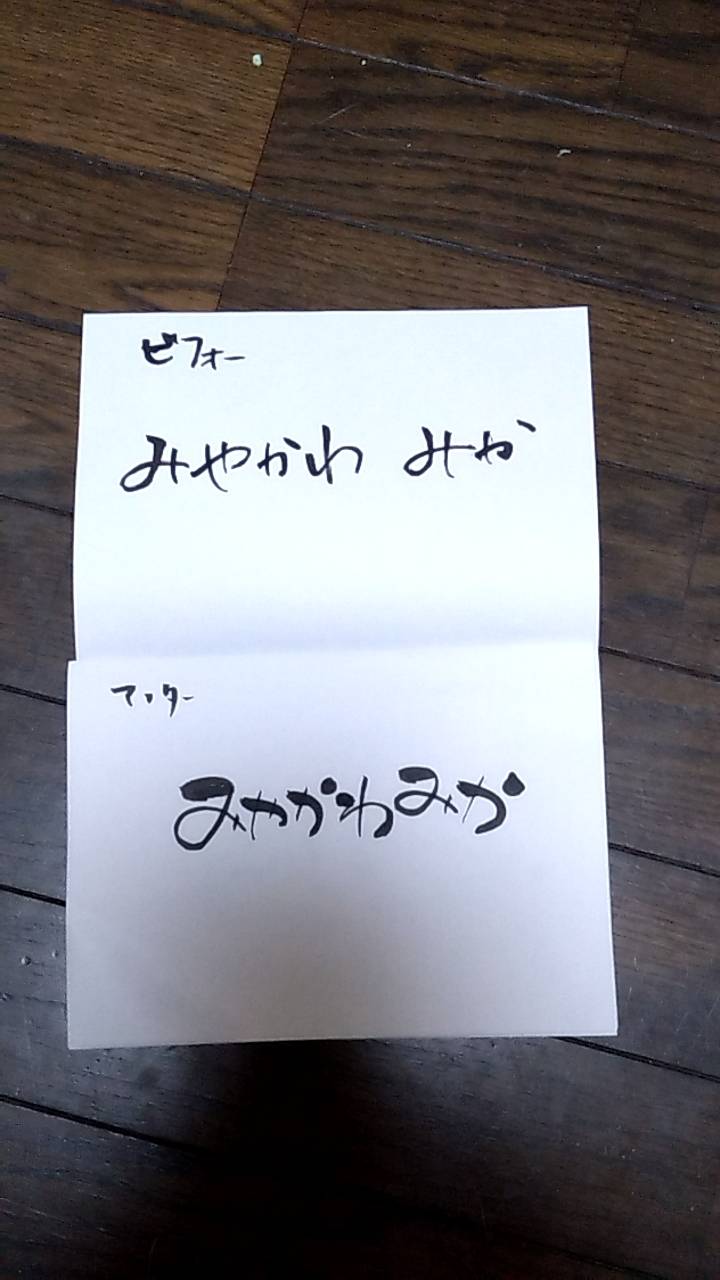 ビフォー
みやかわ みか
アッター
みやかわみか